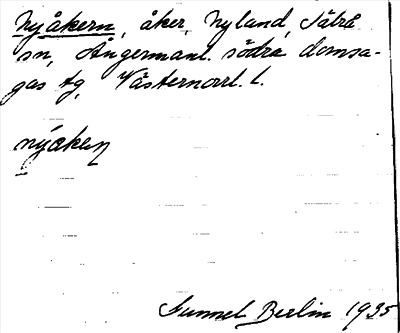 Nyåkern, åker, Nyland, Säbrå
sn, Ångermanl. södra domsa-
gas tg, Västernorrl. l.
nýåkeɳ
Gunnel Berlin 1935